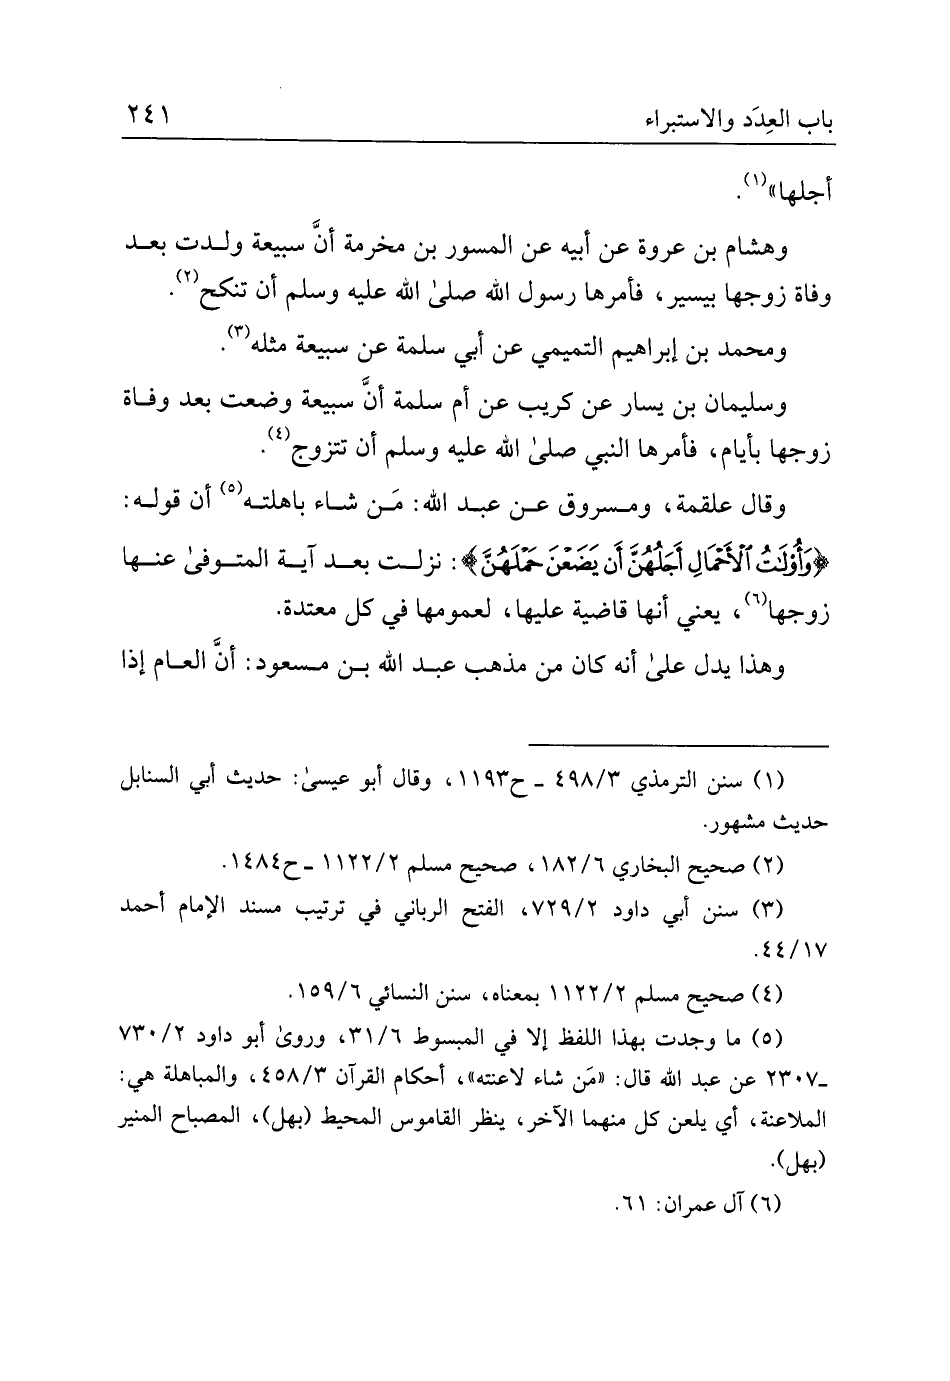 باب العِدَد والاستبراء ٢٤١
أجلها»(١).
وهشام بن عروة عن أبيه عن المسور بن مخرمة أنَّ سبيعة ولدت بعد
وفاة زوجها بيسير، فأمرها رسول الله صلىٰ الله عليه وسلم أن تنكح(٢).
ومحمد بن إبراهيم التميمي عن أبي سلمة عن سبيعة مثله(٣).
وسليمان بن يسار عن كريب عن أم سلمة أنَّ سبيعة وضعت بعد وفاة
زوجها بأيام، فأمرها النبي صلىٰ الله عليه وسلم أن تتزوج(٤).
وقال علقمة، ومسروق عن عبد الله: مَن شاء باهلته(٥) أن قوله:
﴿وَأُوْلَٰتُ ٱلْأَحْمَالِ أَجَلُهُنَّ أَن يَضَعْنَ حَمْلَهُنَّ﴾: نزلت بعد آية المتوفىٰ عنها
زوجها(٦)، يعني أنها قاضية عليها، لعمومها في كل معتدة.
وهذا يدل علىٰ أنه كان من مذهب عبد الله بن مسعود: أنَّ العام إذا
(١) سنن الترمذي ٤٩٨/٣ ـ ح١١٩٣، وقال أبو عيسىٰ: حديث أبي السنابل
حديث مشهور.
(٢) صحيح البخاري ١٨٢/٦، صحيح مسلم ١١٢٢/٢ ـ ح١٤٨٤.
(٣) سنن أبي داود ٧٢٩/٢، الفتح الرباني في ترتيب مسند الإمام أحمد
٤٤/١٧.
(٤) صحيح مسلم ١١٢٢/٢ بمعناه، سنن النسائي ١٥٩/٦.
(٥) ما وجدت بهذا اللفظ إلا في المبسوط ٣١/٦، وروىٰ أبو داود ٧٣٠/٢
ـ٢٣٠٧ عن عبد الله قال: «مَن شاء لاعنته»، أحكام القرآن ٤٥٨/٣، والمباهلة هي:
الملاعنة، أي يلعن كل منهما الآخر، ينظر القاموس المحيط (بهل)، المصباح المنير
(بهل).
(٦) آل عمران: ٦١.